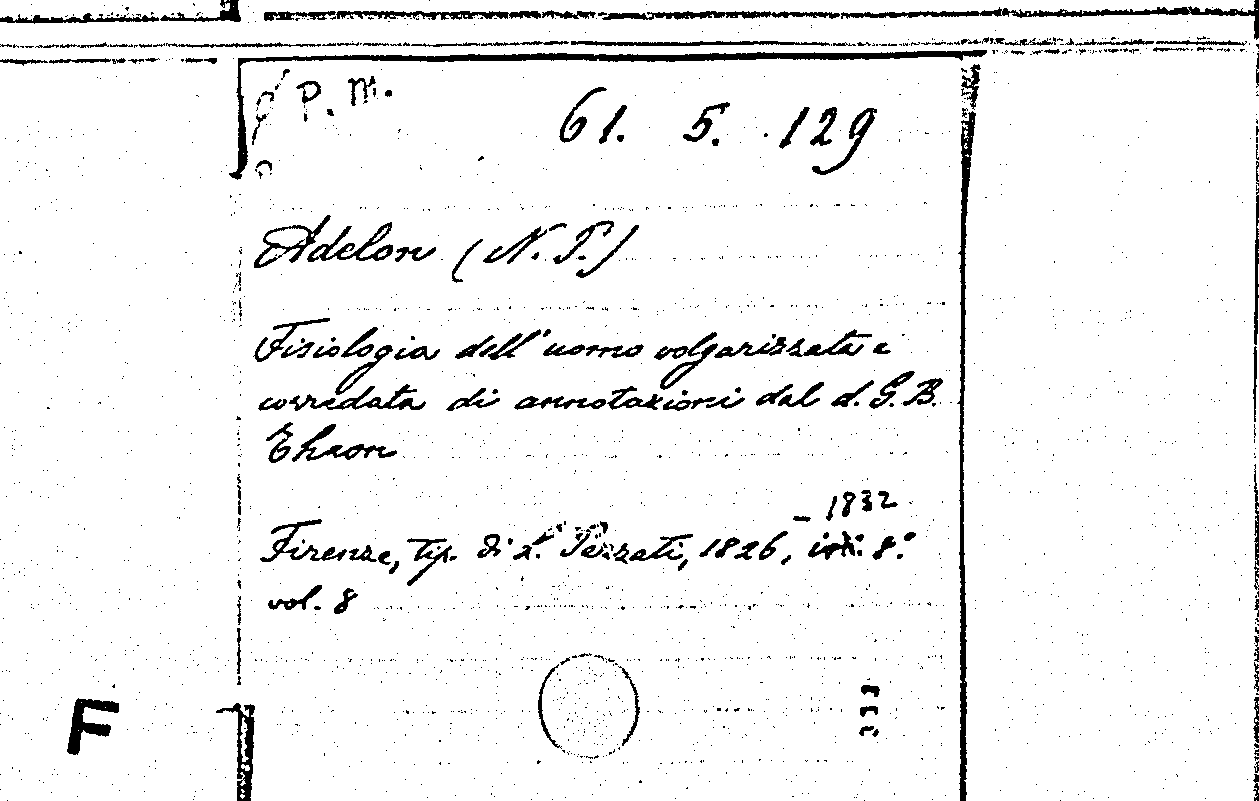 P. M.
61. 5. 129
Adelon (N. P.)
Fisiologia dell'uomo volgarizzata e
corredata di annotazioni dal d. G. B.
Thaon
– 1832
Firenze, tip. di L. Pezzati, 1826, in 8.°
vol. 8
F